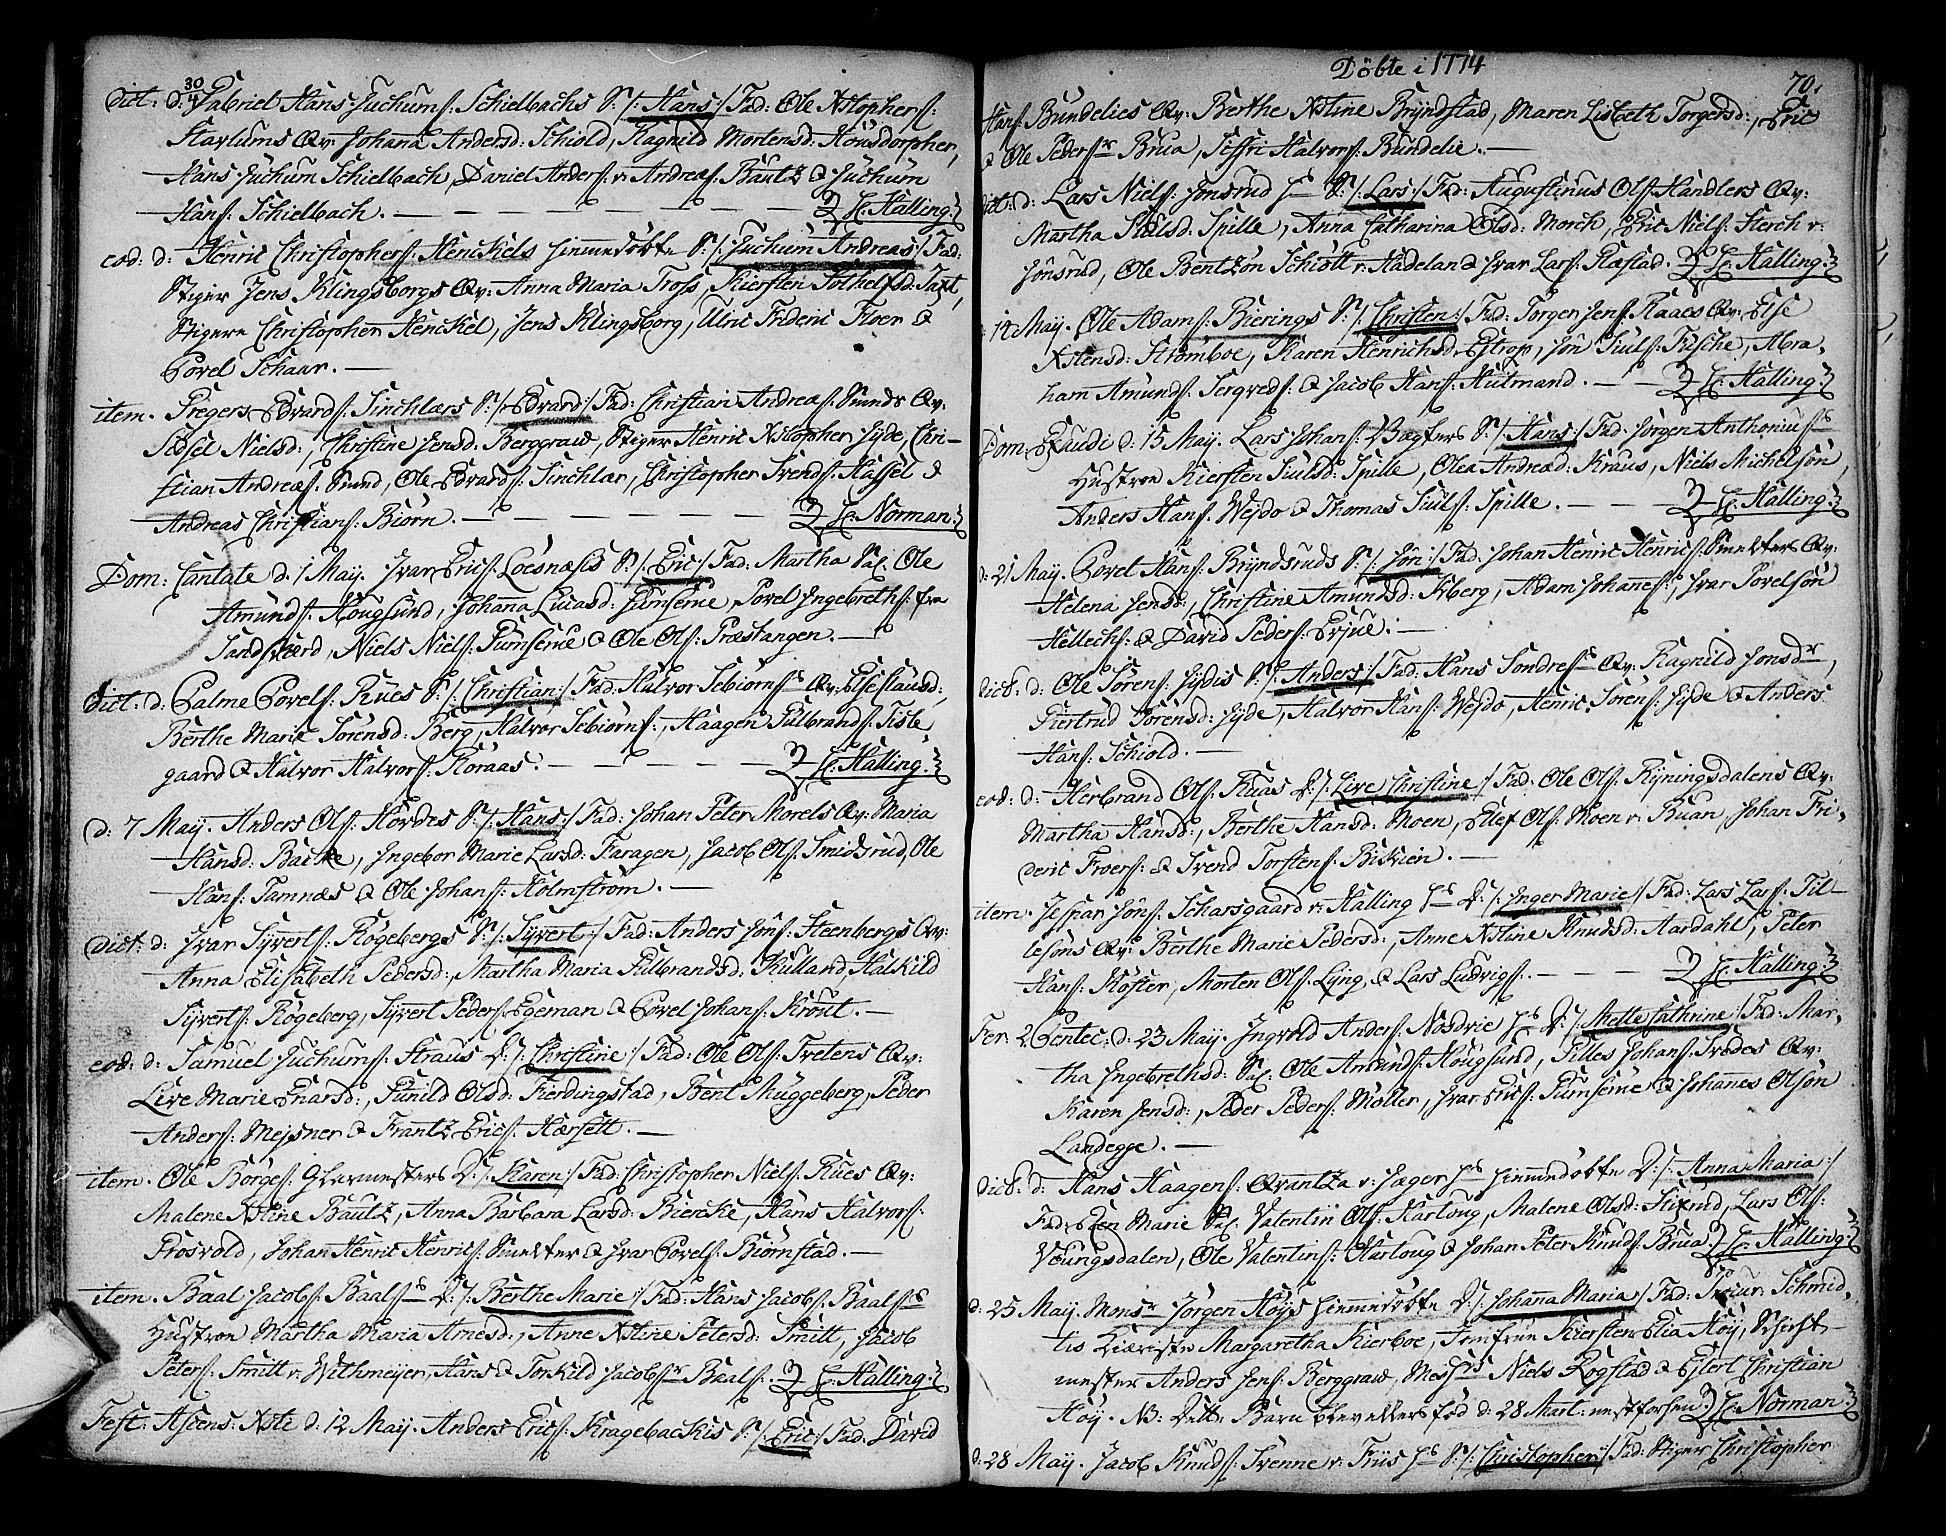 dict: d: 30/4 Gabriel Hans Juchumſ: Schielbachs S: /: Hans :/ Fad: Ole Xstopherſ:
Starlums Qv: Johana Andersd: Schiold, Ragnild Mortensd: Honsdorpher,
Hans Juchum Schielbach, Daniel Anderſ: v: Andreæſ: Bautz & Juchum
Hanſ: Schielbach. — — — — — — — H: Halling:
eod: d: Henric Christopherſ: Henckels hiemedöbte S: /: Juchum Andreas :/ Fad:
Stiger Jens Klingsborgs Qv: Anna Maria Tross, Kiersten Tolhelfsd: Taxt,
Stigere Christopher Henckel, Jens Klingsborg, Ulric Frideric Floer &
Povel Schaar. —
item. Gregers Edvardſ: Sinchlars S: /: Edvard :/ Fad: Christian Andreæſ: Sunds Qv:
Sidsel Nielsd:, Christine Jensd: Berggraw, Stiger Henric Xstopher Hyde, Chri-
stian Andreæſ: Sund, Ole Edvardſ: Sinchlar, Christopher Svendſ: Hassel &
Andreas Christianſ: Biörn. — — — — — — H: Norman:
Dom: Cantate d: 1 May. Jvar Ericſ: Loesnæsis S: /: Eric :/ Fad: Martha Sal. Ole
Amundſ: Hougsund, Johana Lucasd: Gunserne, Povel Jngebrethſ: fra
Sandsværd, Niels Nielſ: Gunserne & Ole Olſ: Præstangen. —
dict: d: Palme Povelſ: Rues S: /: Christian :/ Fad: Halvor Sebiörnſ:s Qv: Else Clausd:,
Berthe Marie Sörensd: Berg, Halvor Sebiörnſ:, Haagen Gulbrandſ: Tiste-
gaard & Halvor Halvorſ: Roraas. — — — — — H: Halling:
d: 7 May. Anders Olſ: Hordes S: /: Hans :/ Fad: Johan Peter Morels Qv: Maria
Hansd: Backe, Jngebor Marie Larsd: Faragen, Jacob Olſ: Smidsrud, Ole
Hanſ: Tamnæs & Ole Johanſ: Holmström. —
dict: d: Jvar Syvertſ: Rögebergs S: /: Syvert :/ Fad: Anders Jönſ: Steenbergs Qv:
Anna Elisabeth Pedersd:, Martha Maria Gulbrandsd: Kulland, Halkild
Syvertſ: Rögeberg, Syvert Pederſ: Egeman & Povel Johanſ: Krout. —
eod: d: Samuel Juchumſ: Straus D: /: Christine :/ Fad: Ole Olſ: Tretens Qv:
Live Marie Enarsd:, Gunild Olsd: Fierdingstad, Bent Muggeberg, Peder
Anderſ: Mejsner & Frantz Ericſ: Horsett. —
item. Ole Börgeſ: Glarmesters D: /: Karen :/ Fad: Christopher Nielſ: Rues Qv:
Malene Xstine Bautz, Anna Barbara Larsd: Biercke, Hans Halvorſ:
Prosvold, Johan Henric Henricſ: Smelter & Jvar Povelſ: Biörnstad. —
item. Baal Jacobſ: Baalſ:s D: /: Berthe Marie :/ Fad: Hans Jacobſ: Baalſ:s
Hustroe Martha Maria Arnesd:, Anne Xstine Petersd: Smitt, Jacob
Peterſ: Smitt v: Withmeyer, Hans & Torkild Jacobſ:r Baalſ: H: Halling:
Fest: Ascens: Xsti d: 12 May. Anders Ericſ: Kragebackis S: /: Eric :/ Fad: David
Döbte i 1774
70.
Hanſ: Bundelies Qv: Berthe Xstine Bryndstad, Maren Lisbeth Torgersd:, Eric
& Ole Pederſ:r Brua, Seffri Halvorſ: Bundelie. —
dict: d: Lars Nielſ: Jonsrud hs S: /: Lars :/ Fad: Augustinus Olſ: Handlers Qv:
Martha Siulsd: Spille, Anna Catharina Olsd: Morch, Eric Nielſ: Sterch v:
Jönsrud, Ole Bentzön Schiött v: Hadeland & Jvar Larſ: Ræstad. H: Halling:
14 May. Ole Adamſ: Bierings S: /: Christen :/ Fad: Torger Jenſ: Raaes Qv: Else
Xstensd: Stromboe, Karen Henrichsd: Estrop, Jön Siulſ: Fische, Abra-
ham Amundſ: Tergved & Jacob Hanſ: Hutmand. — — H: Halling:
Dom: Exaudi d: 15 May. Lars Johanſ: Vægters S: /: Hans :/ Fad: Jörgen Anthoniusſ:s
Hustroe Kiersten Siulsd: Spille, Olea Andreæd: Kraus, Niels Michelsön,
Anders Hanſ: Wejdo & Thomas Siulſ: Spille. — — — H: Halling:
d: 21 May. Povel Hanſ: Bryndsruds S: /: Jön :/ Fad: Johan Henric Henricſ: Smelters Qv:
Helena Jensd:, Christine Amundsd: Kberg, Adam Johaneſ:, Jvar Povelsön
Hellechſ: & David Pederſ: Erjue. —
dict: d: Ole Sörenſ: Hydis S: /: Anders :/ Fad: Hans Sondreſ:s Qv: Ragnild Jonsdr,
Giertrud Sörensd: Hyde, Halvor Hanſ: Wejdo, Henric Sörenſ: Hyde & Anders
Hanſ: Schiold. —
eod: d: Herbrand Olſ: Ruas D: /: Live Christine :/ Fad: Ole Olſ: Ryningsdalens Qv:
Martha Hansd:, Berthe Hansd: Moen, Ellef Olſ: Moen v: Buan, Johan Fri-
deric Froerſ: & Svend Torstenſ: Bistvien. —
item. Jespar Jönſ: Scharsgaard v: Halling hs D: /: Jnger Marie :/ Fad: Lars Larſ: Til-
lesöns Qv: Berthe Marie Pedersd:, Anne Xstine Knudsd: Aardahl, Peter
Hanſ: Köster, Morten Olſ: Lyng, & Lars Ludvigſ: — — — H: Halling:
Fer: 2 Pentec: d: 23 May. Jngvold Anderſ: Nosdvie hs D: /: Mette Cathrine :/ Fad: Mar-
tha Jngebrethsd: Sal. Ole Amundſ: Hougsund, Gilles Johanſ: Trodes Qv:
Karen Jensd:, Peder Pederſ: Möller, Jvar Ericſ: Gunserne & Johanes Olsön
Landegge. —
dict: d: Hans Haagenſ: Qvantza v: Jæger hs hiemedöbte D: /: Anna Maria :/
Fad: Eden Marie Sal. Valentin Olſ: Hartoug, Malene Olsd: Stixrud, Lars Olſ:
Woungsdalen, Ole Valentinſ: Hartoug & Johan Peter Knudſ: Brua. H: Halling:
d: 25 May. Monsr Jörgen Höys hiemedöbte D: /: Johanna Maria :/ Fad: Schmid-
tis Kiæriste Margaretha Kierboe, Jomfrue Kiersten Elia Höy, Schicht-
mester Anders Jenſ: Berggraw, Mesrs Niels Rogstad & Ejlert Christian
Höy. NB: Dette Barn blev ellers föd d: 28 Mart: nestforhen. H: Norman:
d: 28 May. Jacob Knudſ: Svenne v: Friis hs S: /: Christopher :/ Fad: Stiger Christopher